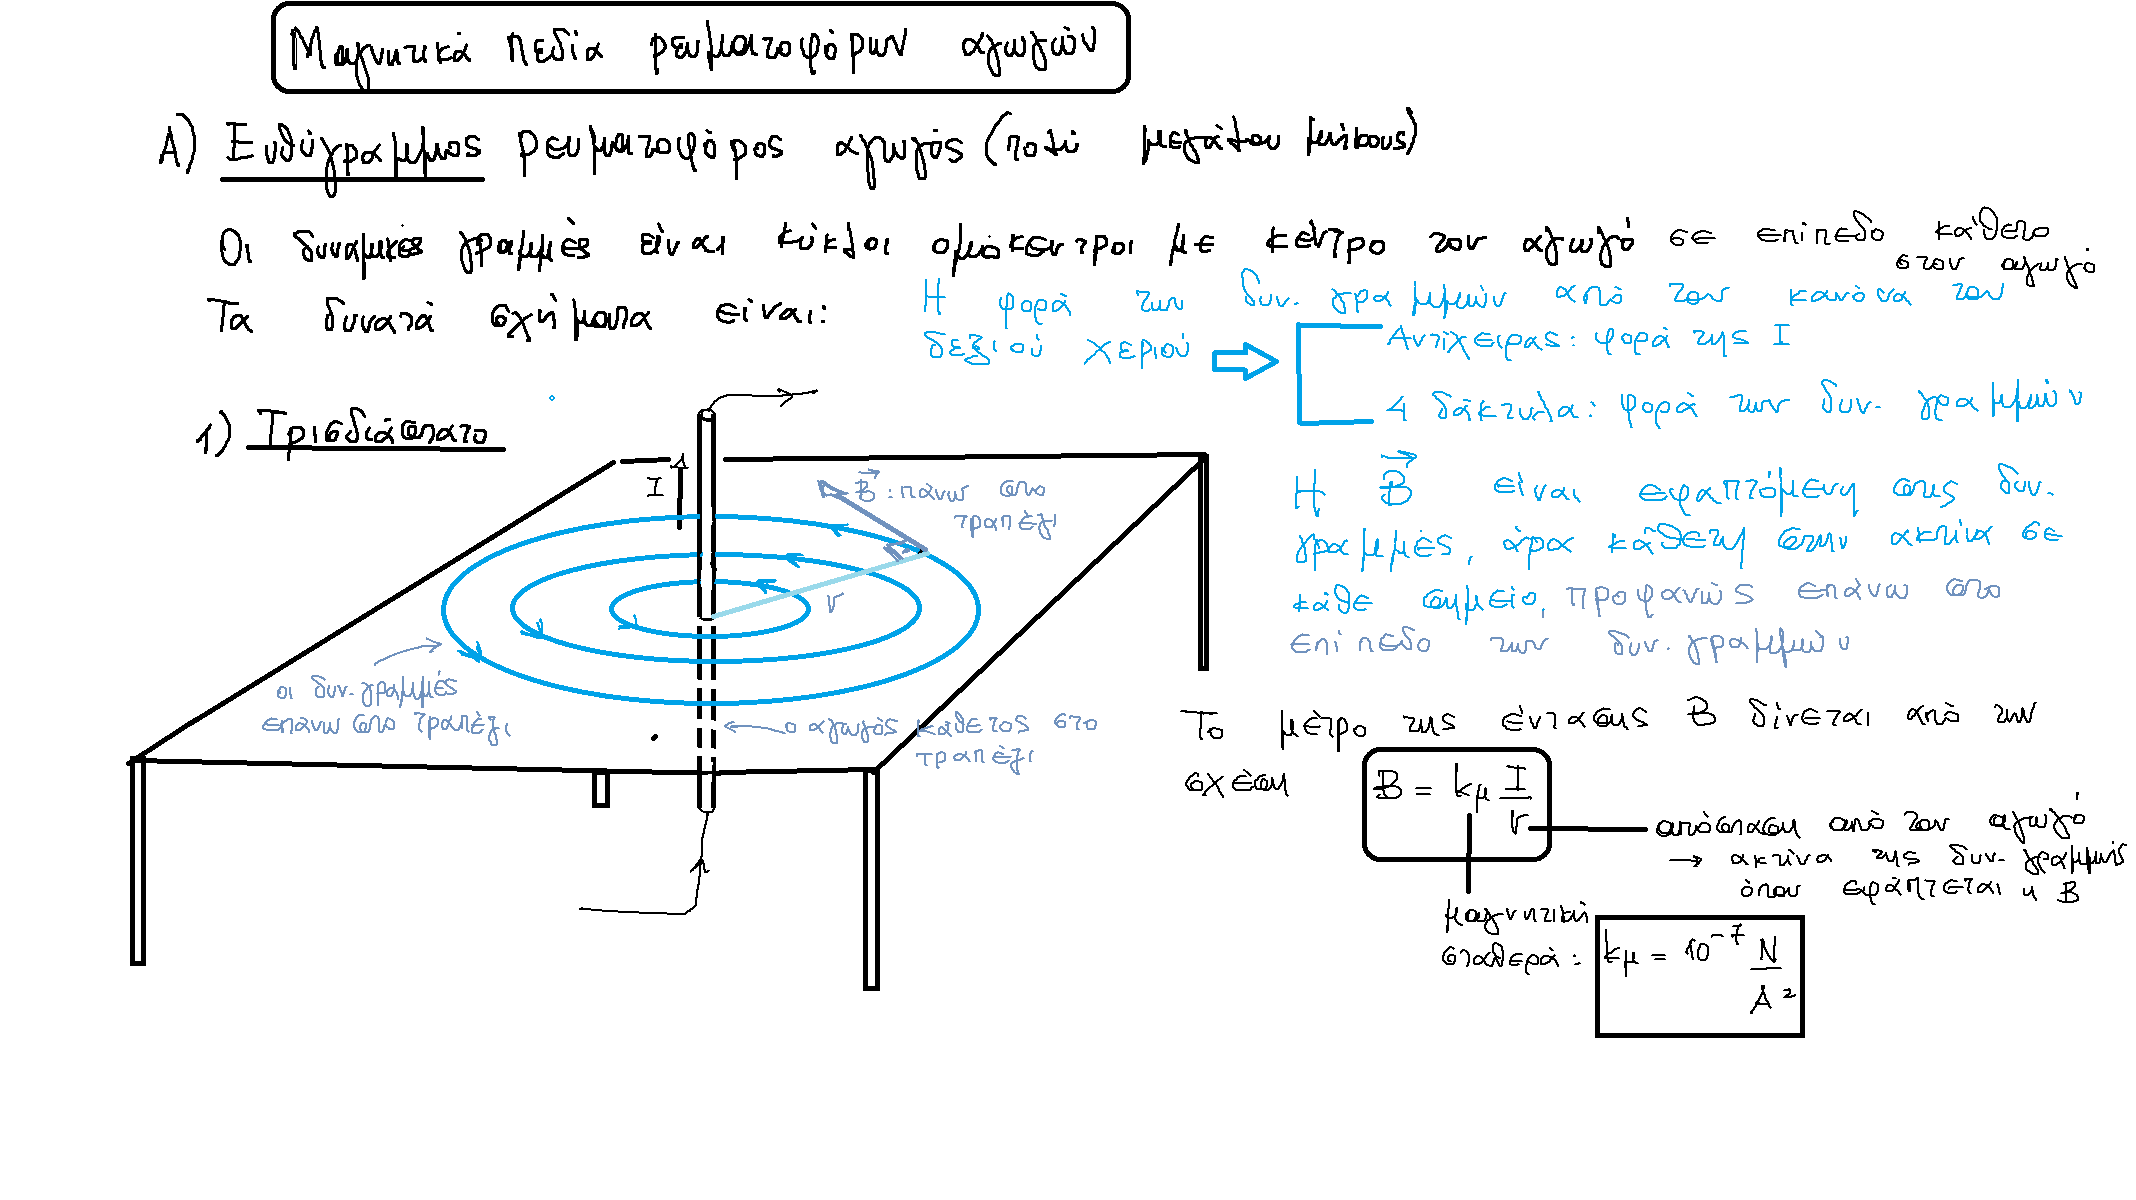 Μαγνητικά πεδία ρευματοφόρων αγωγών
Α) Ευθύγραμμος ρευματοφόρος αγωγός (πολύ μεγάλου μήκους)
Οι δυναμικές γραμμές είναι κύκλοι ομόκεντροι με κέντρο τον αγωγό σε επίπεδο κάθετο
στον αγωγό
Τα δυνατά σχήματα είναι:
Η φορά των δυν. γραμμών από τον κανόνα του
δεξιού χεριού
Αντίχειρας: φορά της I
4 δάκτυλα: φορά των δυν. γραμμών
1) Τρισδιάστατο
I
B⃗: πάνω στο
τραπέζι
r
οι δυν. γραμμές
επάνω στο τραπέζι
ο αγωγός κάθετος στο
τραπέζι
Η B⃗ είναι εφαπτόμενη στις δυν.
γραμμές, άρα κάθετη στην ακτίνα σε
κάθε σημείο, προφανώς επάνω στο
επίπεδο των δυν. γραμμών
Το μέτρο της έντασης B δίνεται από την
σχέση
B = kμ I/r
απόσταση από τον αγωγό
→ ακτίνα της δυν. γραμμής
όπου εφάπτεται η B
μαγνητική
σταθερά:
kμ = 10⁻⁷ N/A²